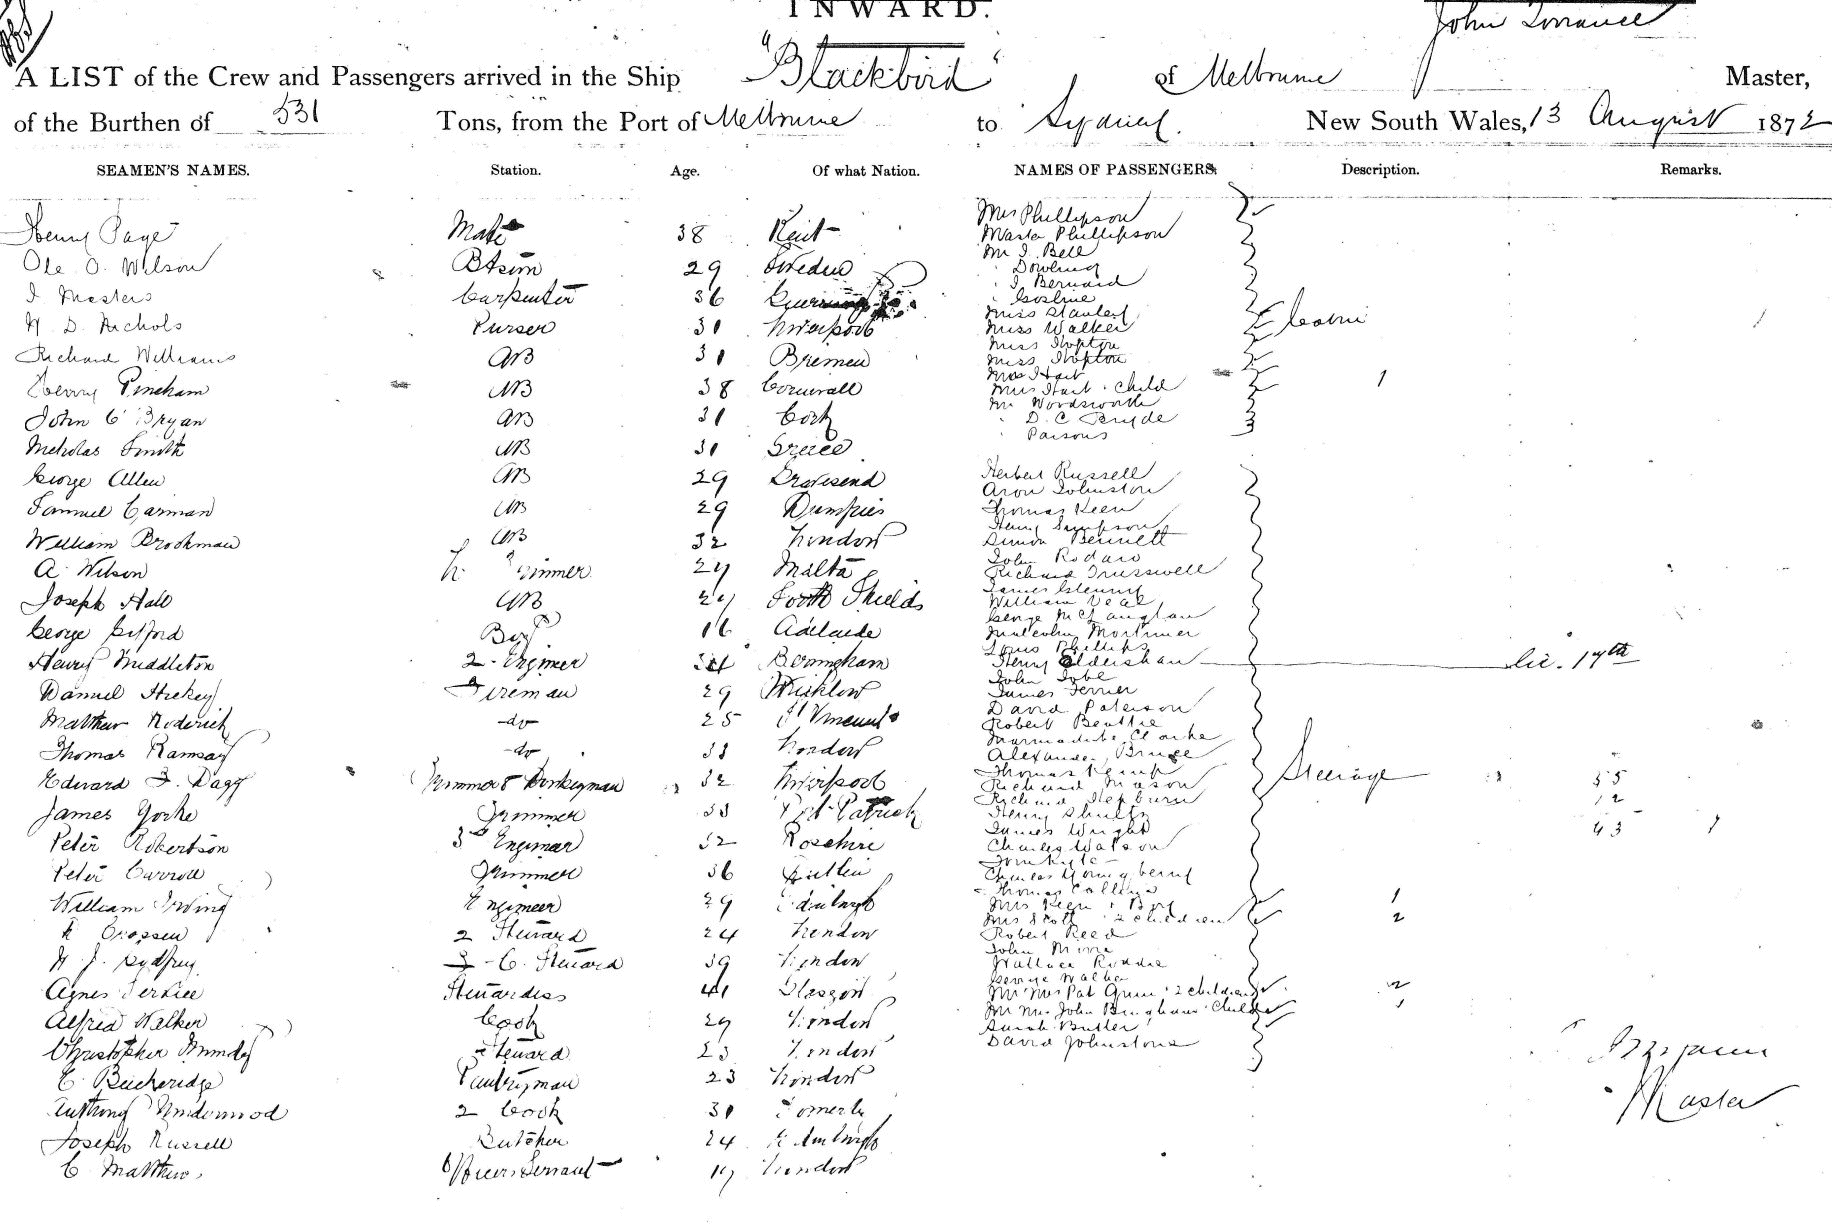 INWARD.
John Torrance
A LIST of the Crew and Passengers arrived in the Ship "Blackbird" of Melbourne Master,
of the Burthen of 531 Tons, from the Port of Melbourne to Sydney. New South Wales, 13 August 1872
SEAMEN'S NAMES. Station. Age. Of what Nation. NAMES OF PASSENGERS. Description. Remarks.
Henry Page Mate 38 Kent
Ole O. Wilson Btswn 29 Sweden
J Masters Carpenter 36
H D. Nichols Purser 31 Liverpool
Richard Williams AB 31 Bremen
Henry Pincham AB 38 Cornwall
John C Bryan AB 31 Cork
Nicholas Smith AB 31 Greece
George Allen AB 29 Gravesend
Samuel Carman AB 29 Dumfries
William Brookman AB 32 London
A Wilson Trimmer 29 Malta
Joseph Hall AB 29 South Shields
George Gifford Boy 16 Adelaide
Henry Middleton 2 - Engineer 34 Birmingham
Daniel Hickey Fireman 29 Wicklow
Matthew Roderick do 25 St Vincent
Thomas Ramsay do 33 London
Edward J. Dagg Trimmer & Donkeyman 32 Liverpool
James Yorke Trimmer 33 Port Patrick
Peter Robertson 3rd Engineer 32 Rosshire
Peter Carroll Trimmer 36 Dublin
William Irving Engineer 29 Edinburgh
Crossen 2 Steward 24 London
H. J. Sydfrey 3 - C. Steward 39 London
Agnes Service Stewardess 41 Glasgow
Alfred Walker Cook 29 London
Christopher Munday Steward 23 London
C. Buckeridge Pantryman 23 London
Anthony Underwood 2 Cook 31
Joseph Russell Butcher 24 Edinburgh
C. Matthews Officers Servant 19 London
Mrs Phillipson
Master Phillipson
Mr J. Bell
Dowling
J Bernard
Gosline
Miss Stanley
Miss Walker Cabin
Miss Stopton
Miss Stopton
Miss Hart
Mrs Hart & child 1
Mr Wordsworth
D. C Pryde
Parsons
Herbert Russell
Aron Johnston
Thomas Keen
Henry Simpson
Simon Bennett
John Rodard
Richard Trusswell
James Glenny
William Veal
George McLauglan
Malcolm Mortimer
Louis Phillips
Henry Eldershaw lic. 17th
John Jobe
James Ferrier
David Paterson
Robert Beattie
Marmaduke Clarke
Alexander Bruce
Thomas Kemp Steerage 55
Richard Mason
Richard Hepburn 12
Henry Shultz
James Wright 43
Charles Watson
Tom Kyte
Charles Youngberry
Thomas Collins
Mrs Keen & Boy 1
Mrs Scott & 2 children 2
Robert Reed
John Moore
Wallace Roddie
George Walker
Mr Mrs Pat Gunn & 2 children 2
Mr Mrs John Bingham & Child 1
Sarah Butler
David Johnstone
Master